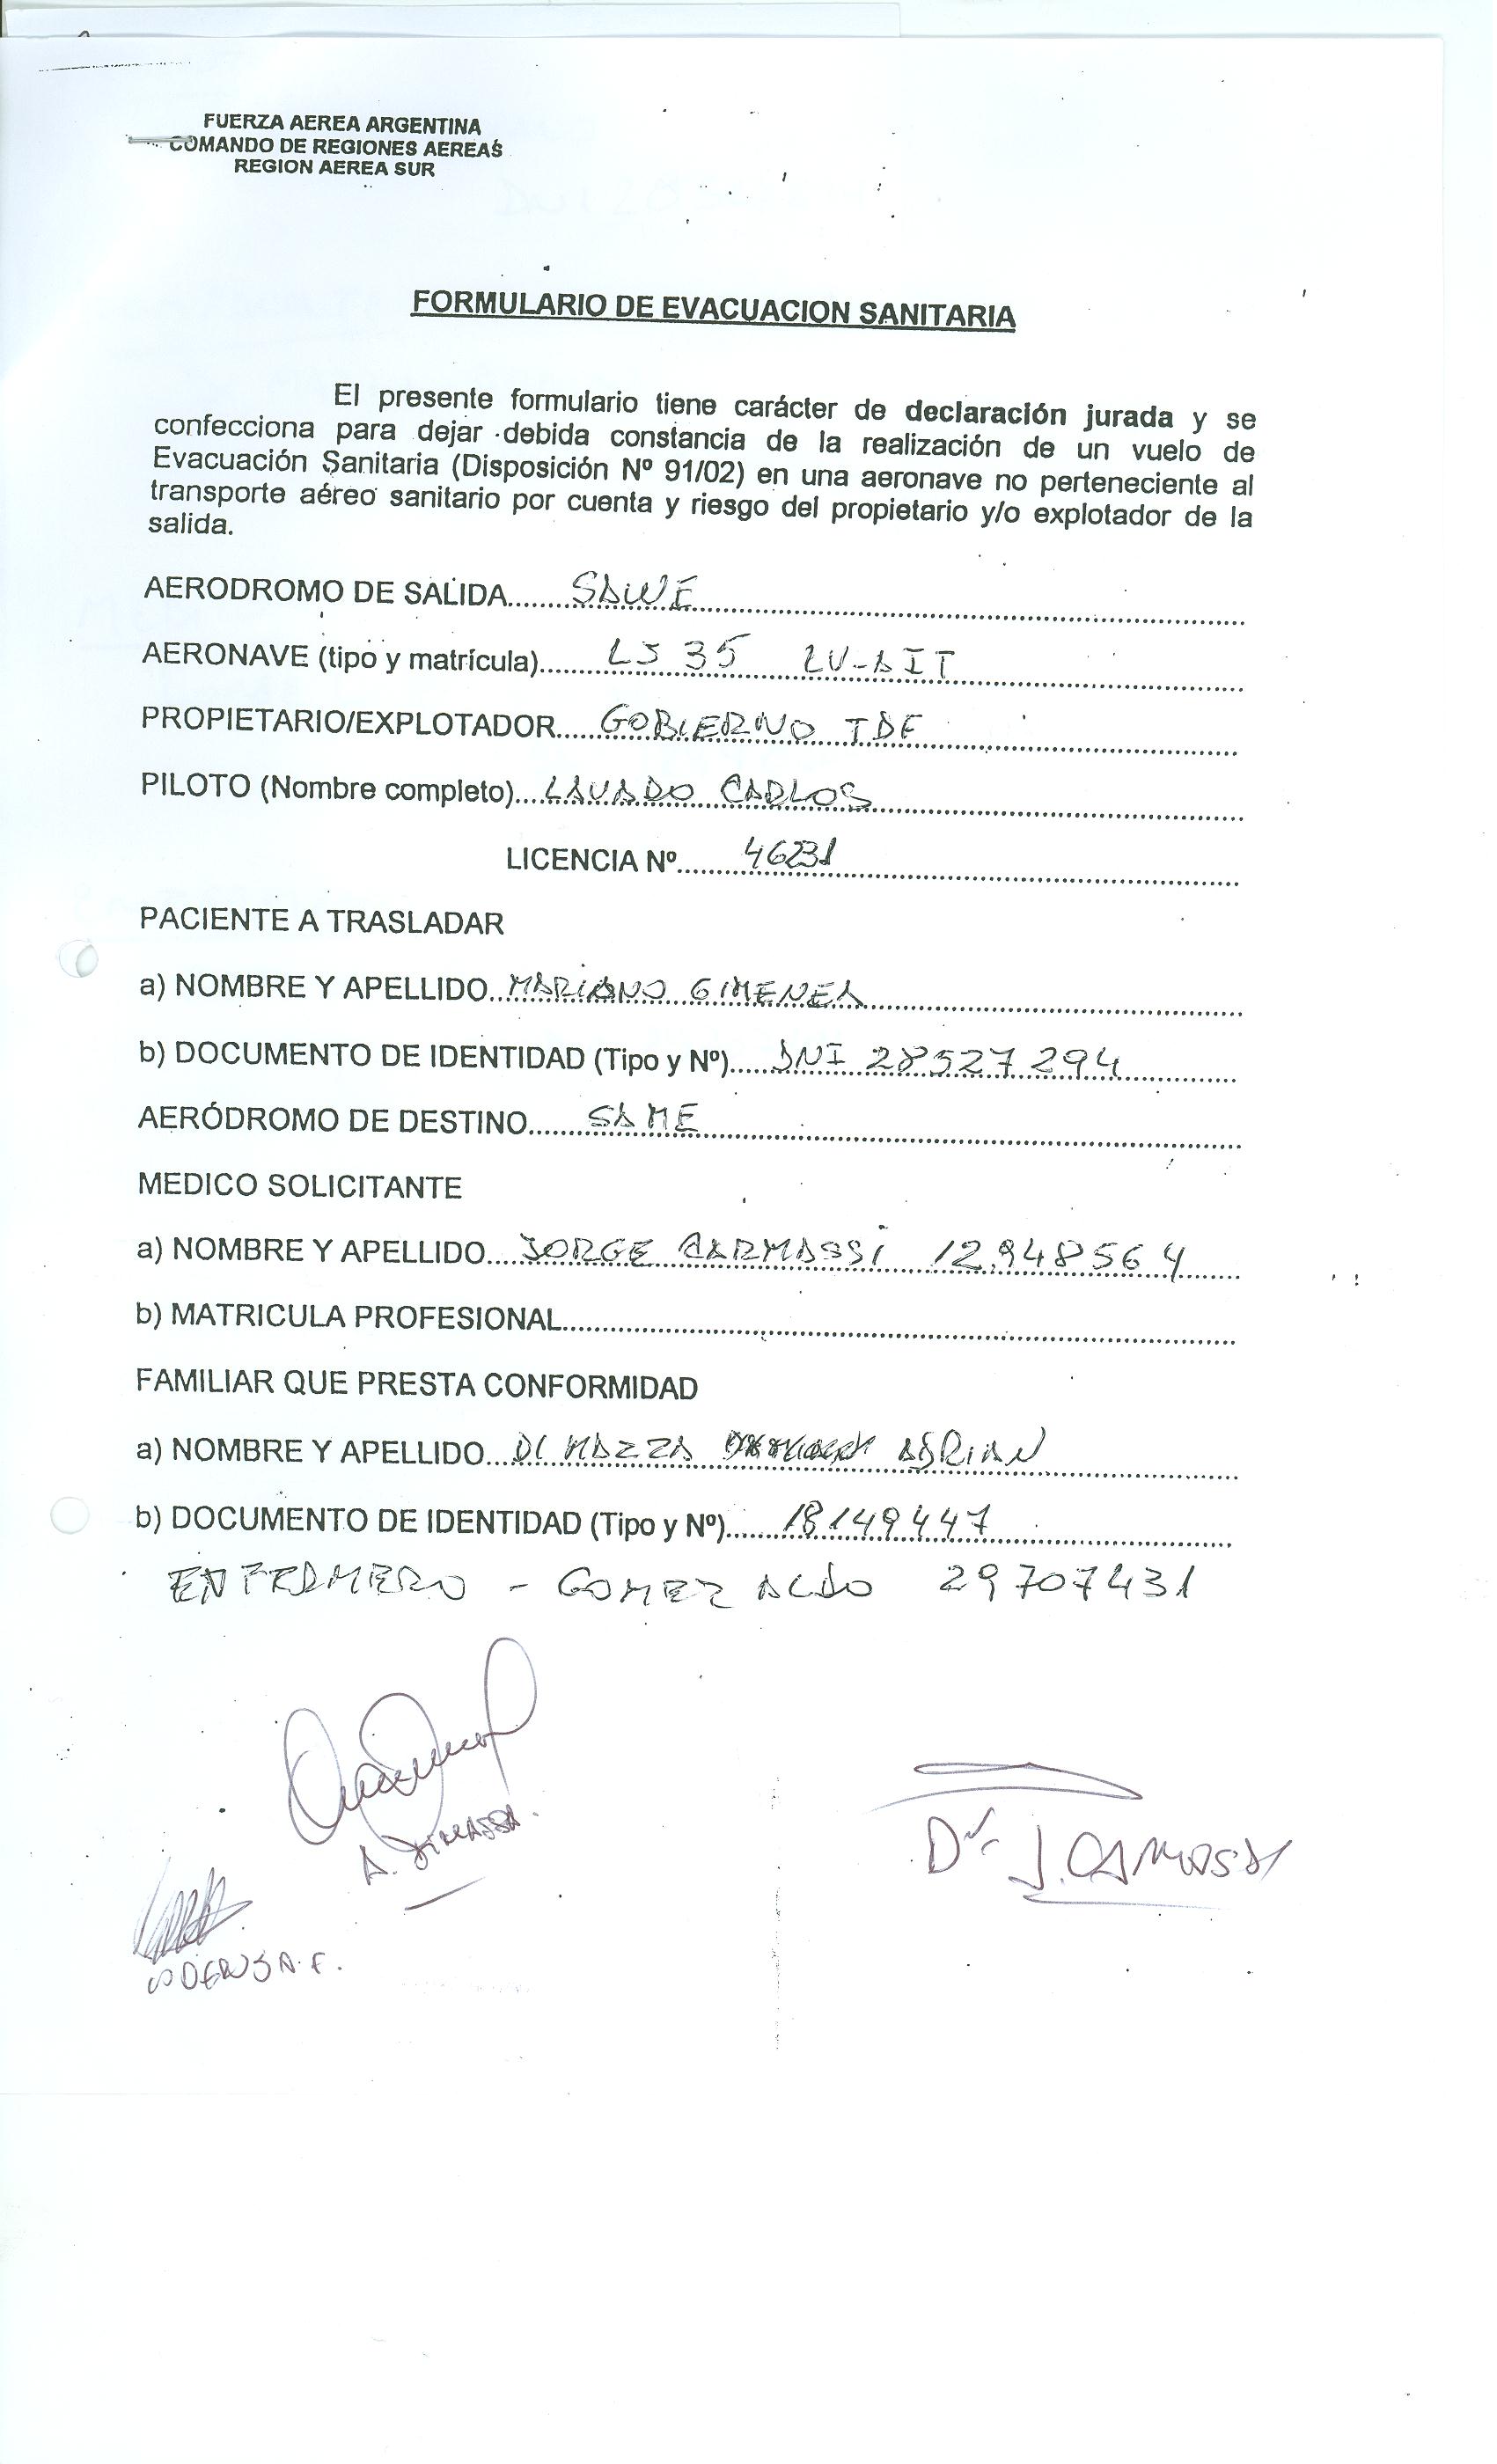 FUERZA AEREA ARGENTINA
COMANDO DE REGIONES AEREAS
REGION AEREA SUR
FORMULARIO DE EVACUACION SANITARIA
El presente formulario tiene carácter de declaración jurada y se
confecciona para dejar debida constancia de la realización de un vuelo de
Evacuación Sanitaria (Disposición Nº 91/02) en una aeronave no perteneciente al
transporte aéreo sanitario por cuenta y riesgo del propietario y/o explotador de la
salida.
AERODROMO DE SALIDA........SAWE
AERONAVE (tipo y matrícula)........LJ 35 LV-AIT
PROPIETARIO/EXPLOTADOR......GOBIERNO TDF
PILOTO (Nombre completo)....LAVADO CARLOS
LICENCIA Nº........4631
PACIENTE A TRASLADAR
a) NOMBRE Y APELLIDO..MARIANO GIMENEZ
b) DOCUMENTO DE IDENTIDAD (Tipo y Nº).....DNI 28527294
AERÓDROMO DE DESTINO.......SAME
MEDICO SOLICITANTE
a) NOMBRE Y APELLIDO....JORGE CARMASSI 12.948564
b) MATRICULA PROFESIONAL
FAMILIAR QUE PRESTA CONFORMIDAD
a) NOMBRE Y APELLIDO...DI MAZZA ADRIAN
b) DOCUMENTO DE IDENTIDAD (Tipo y Nº)......18149447
ENFERMERO - GOMEZ ALDO 29707431
A. DIMASSA.
Dr. J. CARMASSI